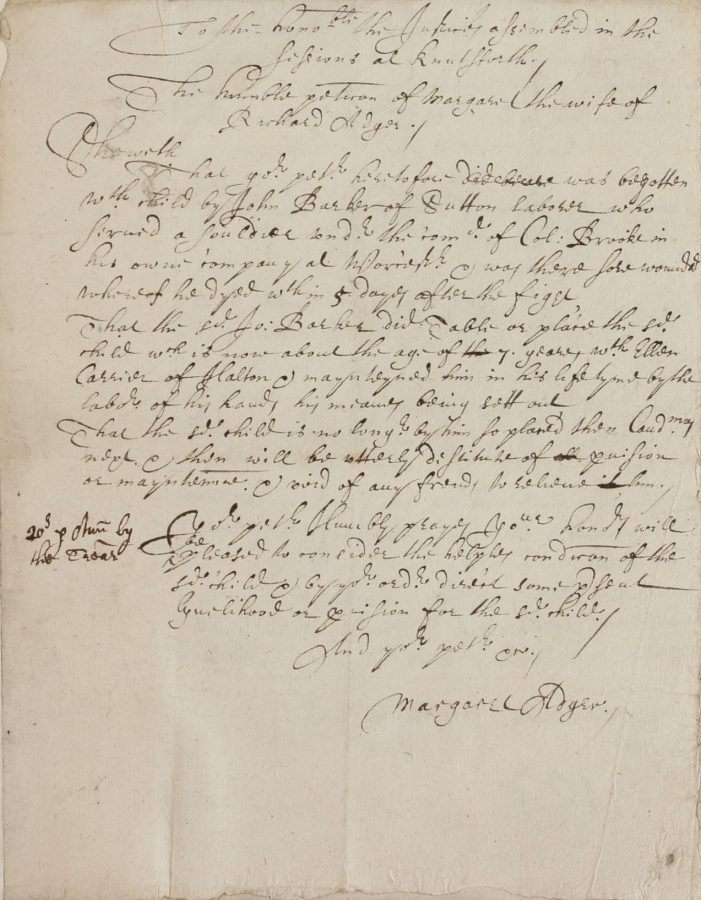 To the hono:ble the Justices assembled in the
sessions at Knutsforth./
The humble peticon of Margaret the wife of
Richard Adger./
Sheweth
That yor: petr: heretofore was begotten
wth child by John Barker of Sutton laborer who
served a souldier undr: the comd: of Col: Brooke in
his owne company at Worcestr: & was there sore wounded
whereof he dyed wthin 5 dayes after the fight
That the sd: Jo: Barker did Table or place the sd:
child wch is now about the age of 7. yeares, wth Ellen
Carrier of Halton & maynteyned him in his life tyme by the
labor: of his hands his meanes being sett out
That the sd: child is no longr: by him so placed then Candmas
next & then will be utterly destitute of pvision
or mayntennce. & void of any frends to releive him./
20s p Annu by
the Trear
Yor: petr: Humbly prayes Your honrs: will
be
pleased to consider the helples condicon of the
sd: child & by yor: ordr: direct some psent
lyvelihood or pvision for the sd: child./
And yor: petr: &c./
Margaret Adger./